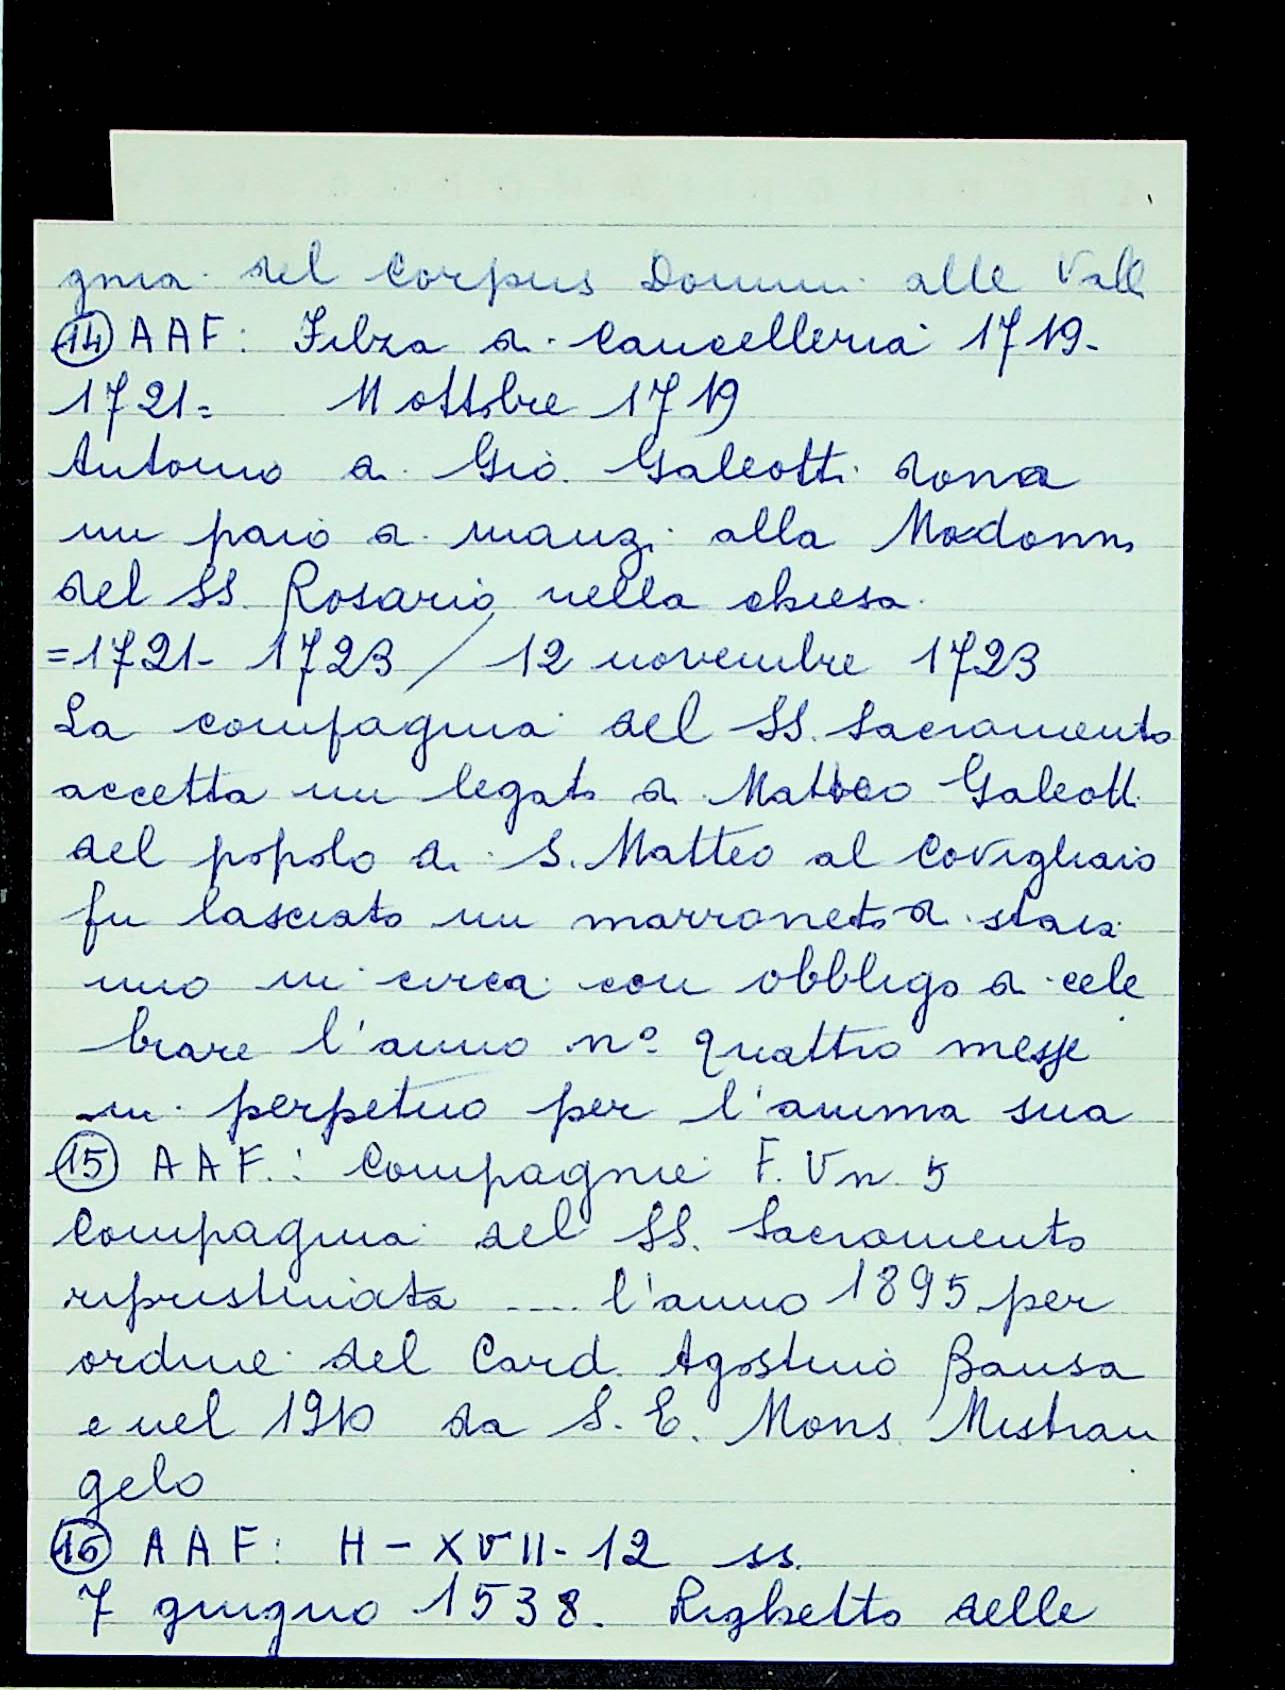 gnia del Corpus Domini alle Valli
(14) AAF: Filza di Cancelleria 1719-
1721= 11 ottobre 1719
Antonio di Gio. Galeotti dona
un paio di manzi alla Madonna
del SS. Rosario nella chiesa.
=1721- 1723 / 12 novembre 1723
La compagnia del SS. Sacramento
accetta un legato di Matteo Galeotti
del popolo di S. Matteo al Covigliaio
fu lasciato un marroneto di staia
uno in circa con obbligo di cele
brare l'anno n° quattro messe
in perpetuo per l'anima sua
(15) AAF.: Compagnie F. V n. 5
Compagnia del SS. Sacramento
ripristinata .... l'anno 1895 per
ordine del Card. Agostino Bausa
e nel 1910 da S. E. Mons. Mistran
gelo
(16) AAF: H - XVII - 12 ss.
7 giugno 1538. Righetto delle